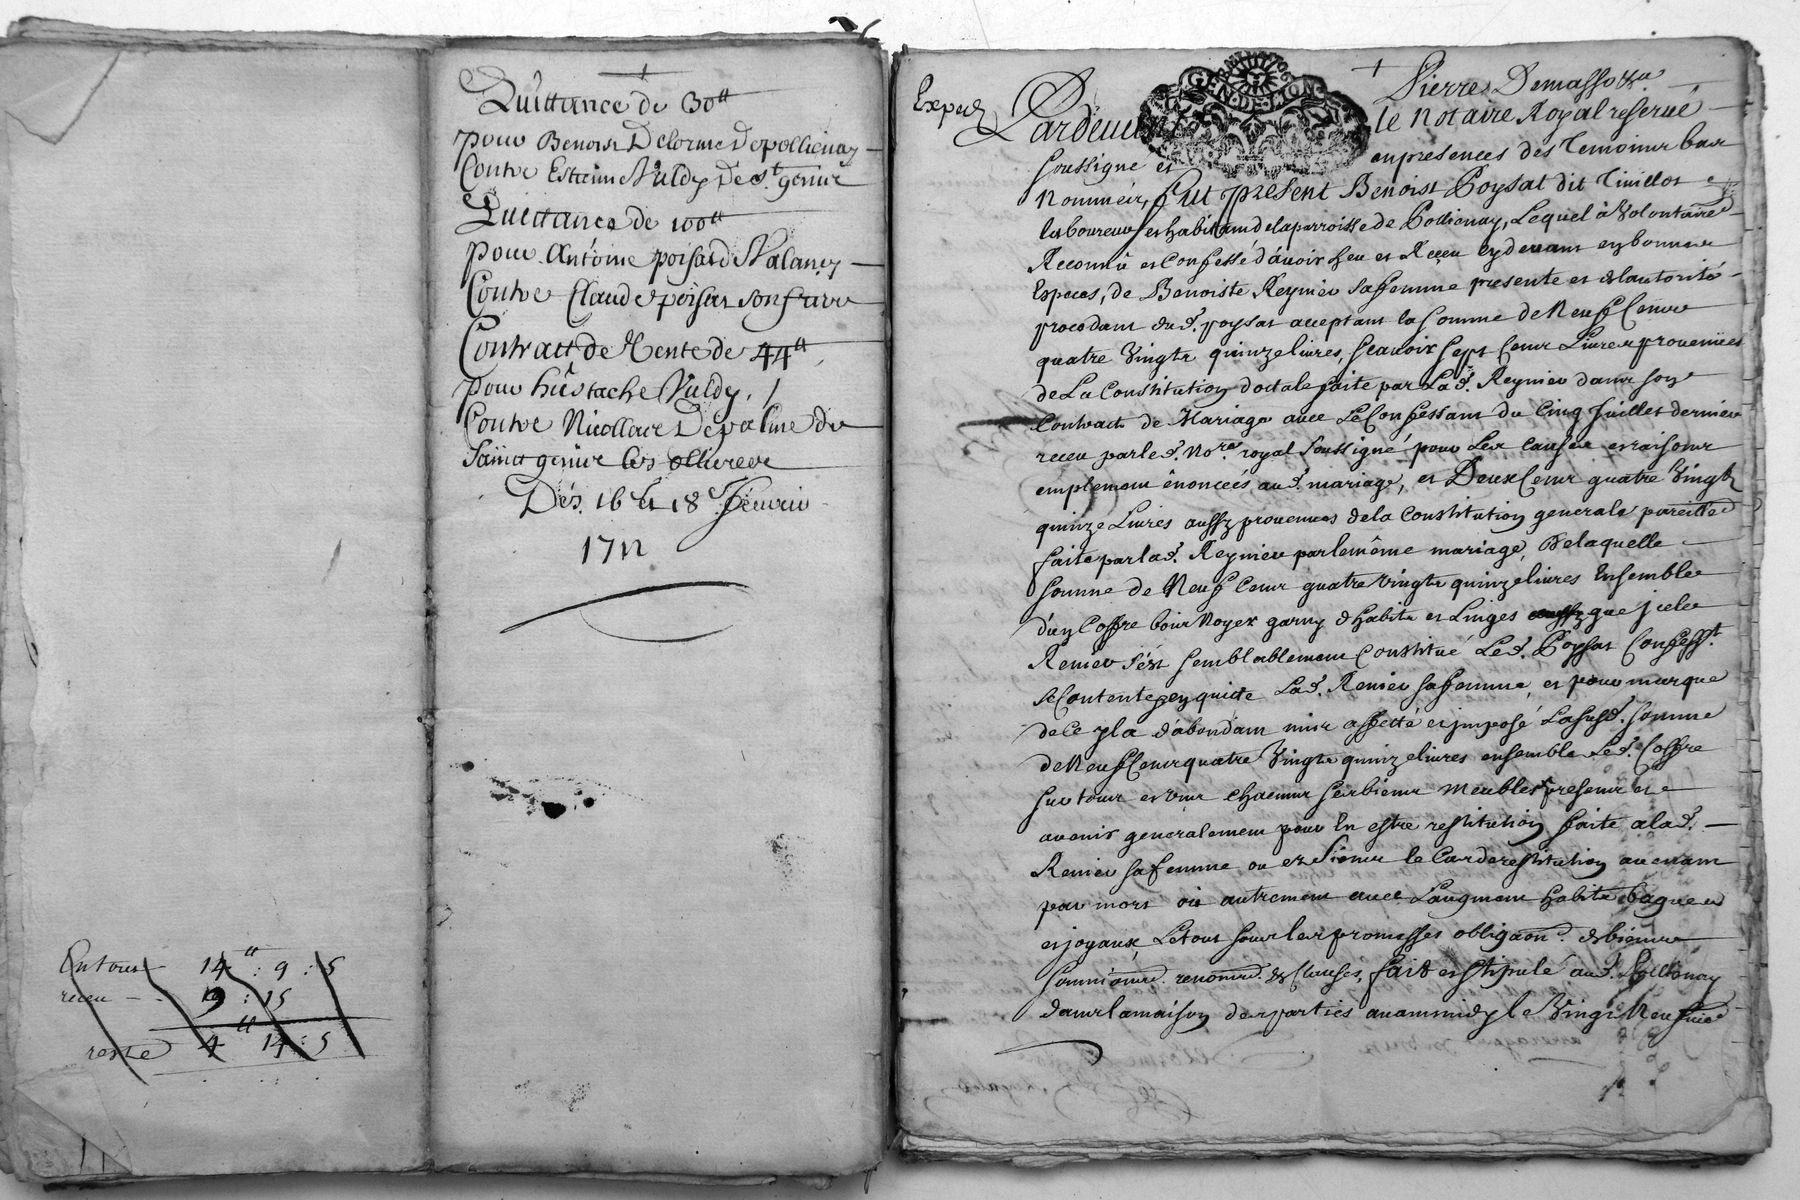 Quittance de 30tt
pour Benoist Delorme de pollienay
Contre Estienne Nuldy de St. genive
Quittance de 100tt
pour Antoine poisat de Valancy
Contre Claude poisat son frere
Contract de Rente de 44tt
pour hustache Nuldy
Contre Nicollace Depalme de
Sainct genive les ollieres
Des 16 et 18e. feuvrier
1712
En tout 14tt : 9 : 5
receu 9 : 15
reste 4tt 14 : 5
Exped
GEN. DE. MON
Pierre Demasso &a
Pardeuant le notaire Royal reserué
soussigné et en presences des Temoins bas
Nommés, fut present Benoist Poysat dit Tiuillot
laboureur et habitant de la parroisse de Pollienay, Lequel à Volontaire
Reconnû et Confessé d'auoir heu et Receu cy deuant en bonnes
Especes, de Benoiste Reynier sa femme presente et de l'autorité
procedant dud. poysat acceptant la somme de Neuf Cens
quatre Vingts quinze liures, scauoir sept Cens Liures prouenües
de La Constitution doctale faite par Lad. Reynier dans son
Contract de Mariage auec Le Confessant du Cinq Juillet dernier
receu par led. No.re royal soussigné pour Les causes et raisons
emplement énonceés aud. mariage, et Deux Cens quatre Vingts
quinze Liures aussy prouenues de la Constitution generale pareille
faite par lad. Reynier par le même mariage, De laquelle
somme de Neuf Cens quatre Vingts quinze liures Ensemble
d'un Coffre bois Noyer garny d'habits et Linges que jcelle
Renier s'est semblablement Constitué Led. Poysat Confess.t
se Contente et en quitte Lad. Renier sa femme, et pour marque
de ce jl a d'abondant mis affecté et jmposé La susd. somme
de Neuf Cens quatre Vingts quinze liures ensemble Led. Coffre
sur tous et Vns Chacuns ses biens Meubles presents et
auenir generalement pour En estre restitution faite a lad.
Renier sa femme ou es Siens le Cas de restitution auenant
par mort où autrement auec L'augment habits bagues
et joyaux, Le tout sous les promesses obliga.on & biens
soumission renon. & Clauses, fait et stipulé aud. Pollienay
dans la maison des parties auant midy le Vingt Neufuie